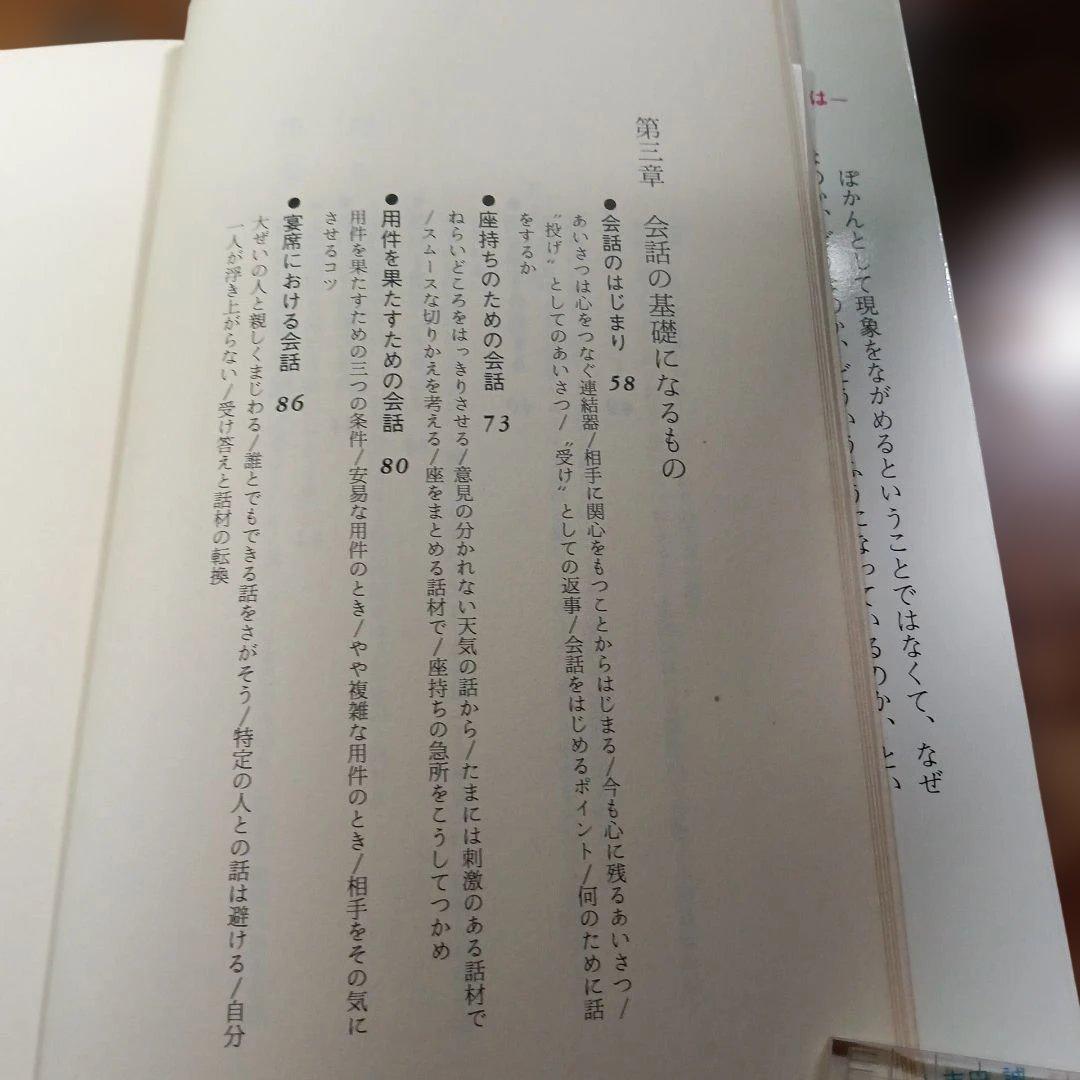 は―
ぽかんとして現象をながめるということではなくて、なぜ
なのか、どういうふうになっているのか、とい
第三章 会話の基礎になるもの
●会話のはじまり 58
あいさつは心をつなぐ連結器/相手に関心をもつことからはじまる/今も心に残るあいさつ/
〝投げ〟としてのあいさつ/〝受け〟としての返事/会話をはじめるポイント/何のために話
をするか
●座持ちのための会話 73
ねらいどころをはっきりさせる/意見の分かれない天気の話から/たまには刺激のある話材で
/スムースな切りかえを考える/座をまとめる話材で/座持ちの急所をこうしてつかめ
●用件を果たすための会話 80
用件を果たすための三つの条件/安易な用件のとき/やや複雑な用件のとき/相手をその気に
させるコツ
●宴席における会話 86
大ぜいの人と親しくまじわる/誰とでもできる話をさがそう/特定の人との話は避ける/自分
一人が浮き上がらない/受け答えと話材の転換